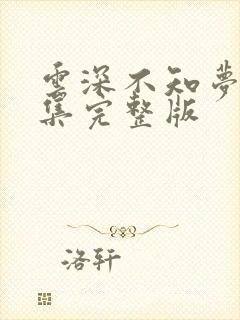 雲深不知夢
集完整版
洛轩